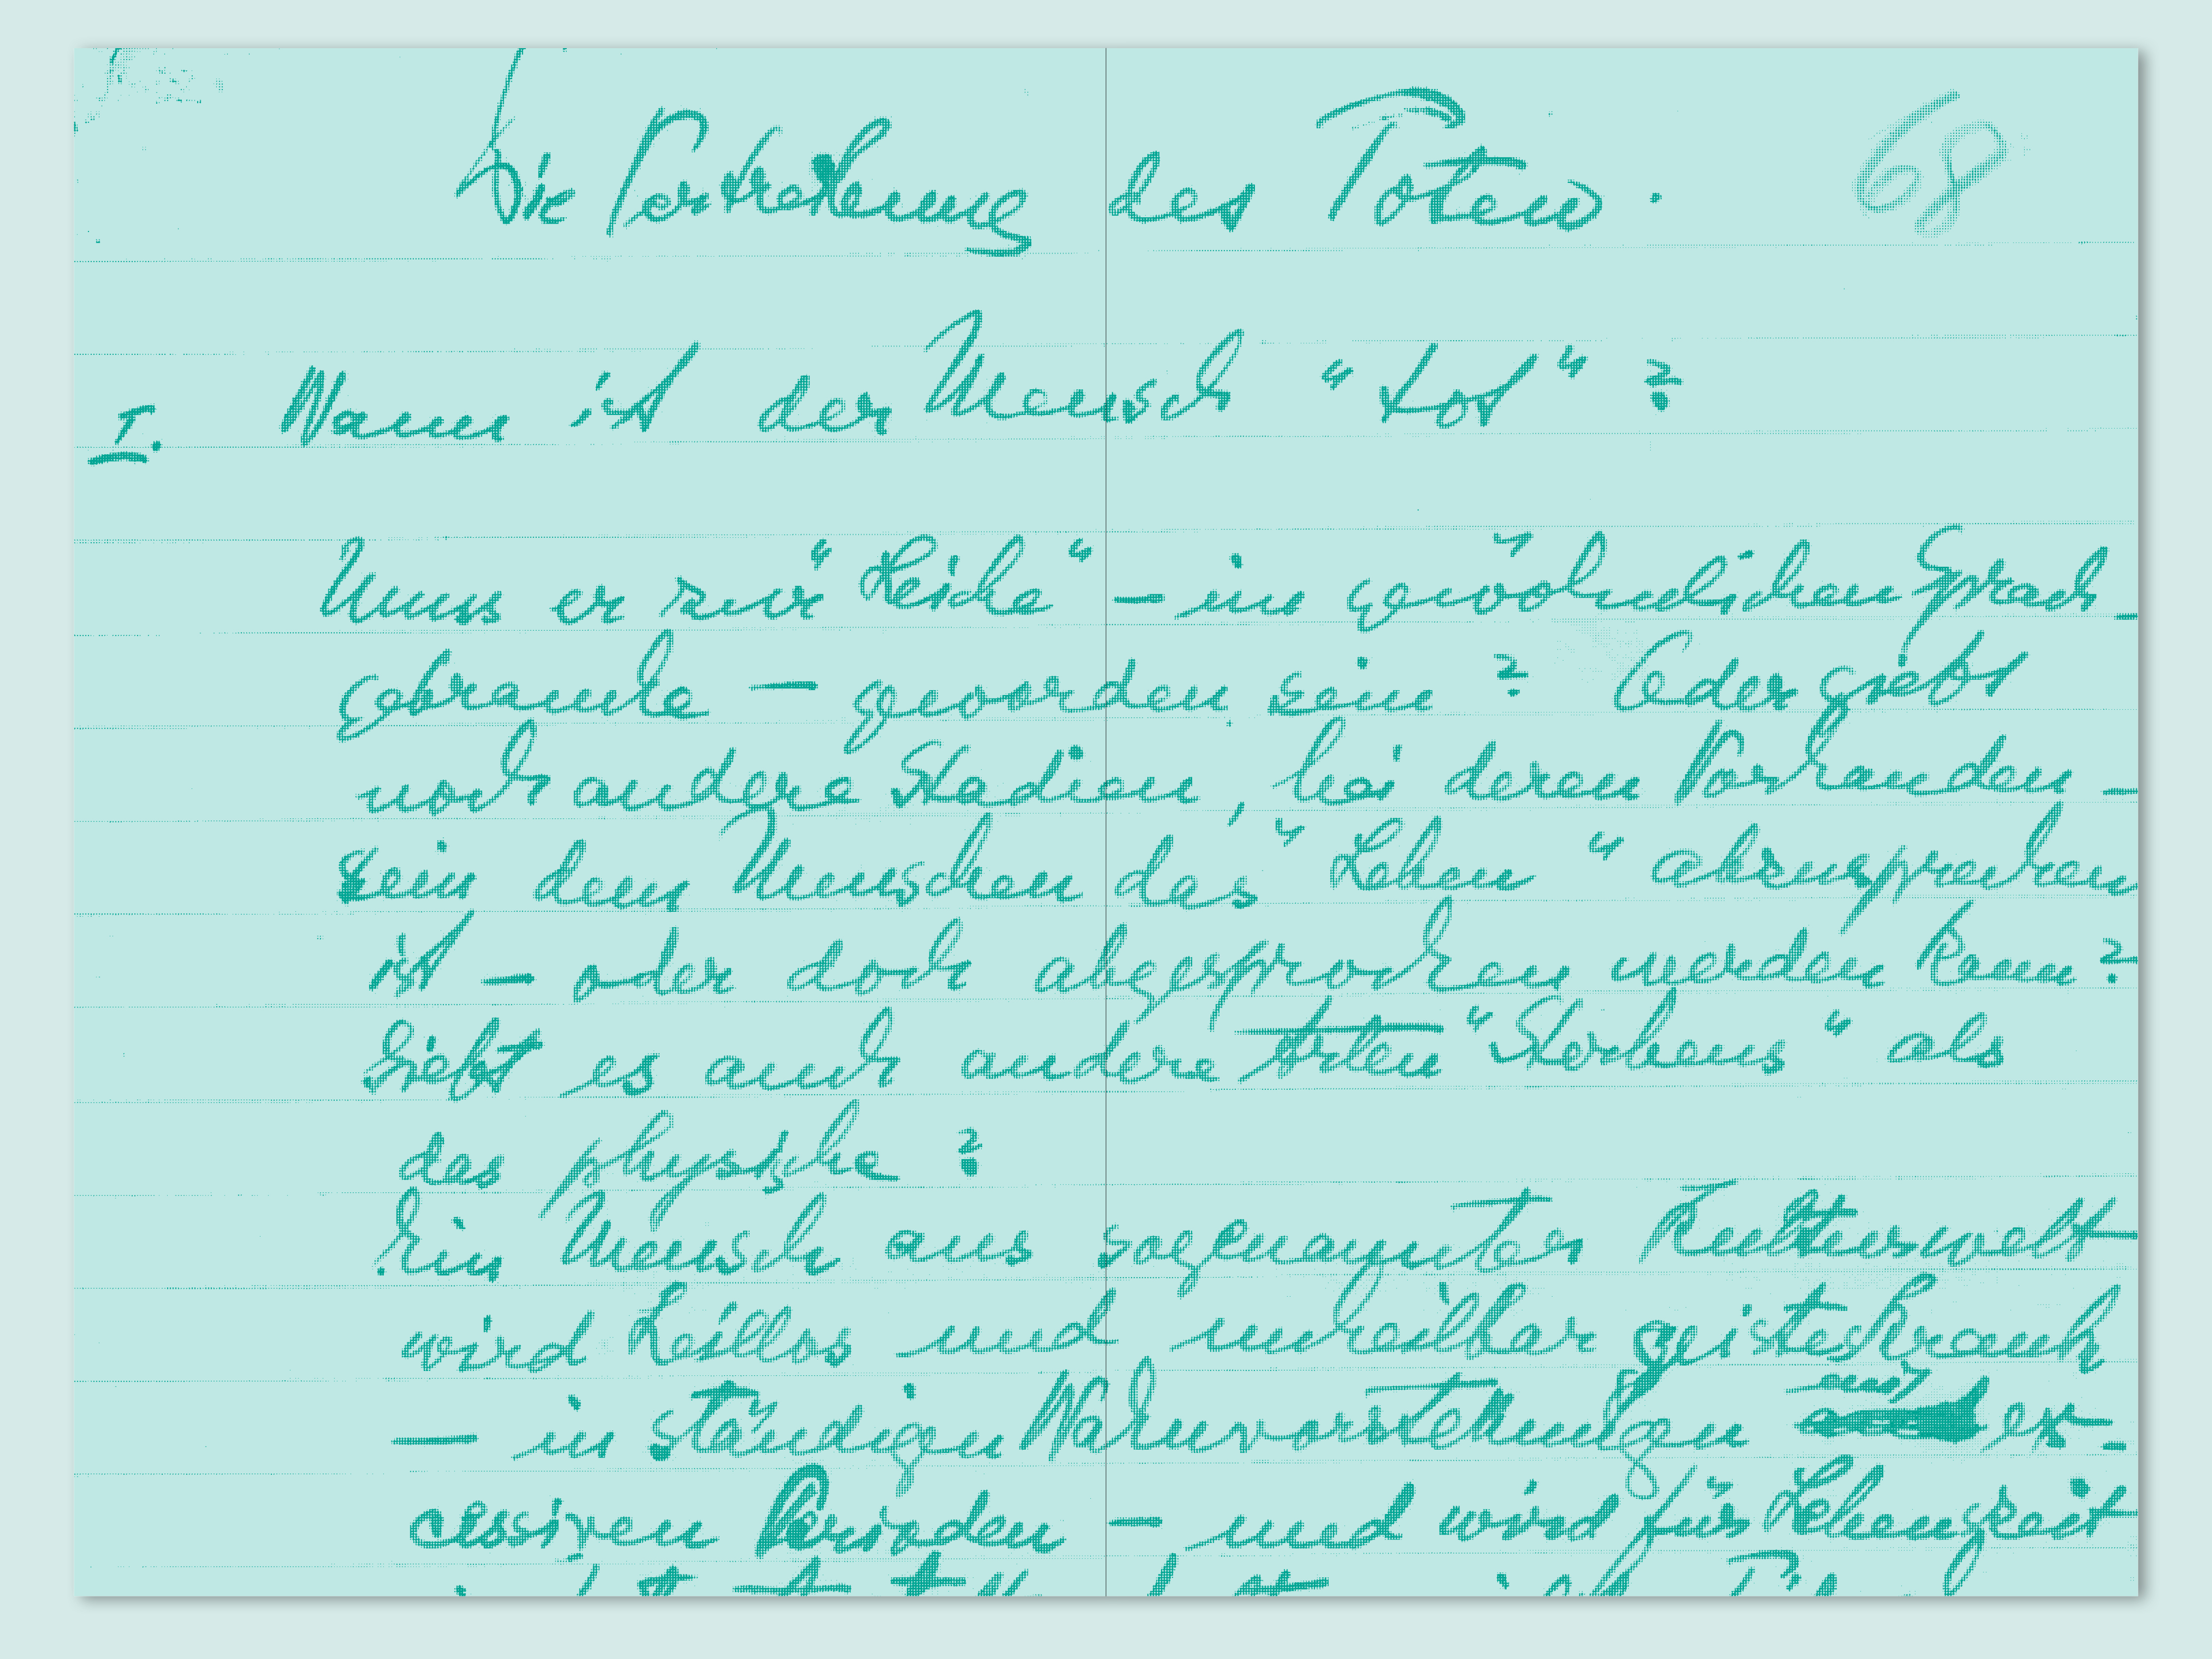 Die Vertretung des Toten. 68
I. Wann ist der Mensch "tot"?
Muss er zur "Leiche" – im gewöhnlichen Sprach-
gebrauche – geworden sein? Oder giebt
noch andere Stadien, bei deren Vorhanden-
sein dem Menschen das "Leben" abzusprechen
ist – oder doch abgesprochen werden kann?
Giebt es auch andere Arten "Sterbens" als
das physische?
Ein Mensch aus sogenannter Kulturwelt
wird heillos und unheilbar geisteskrank
– in ständigen Wahnvorstellungen mit ex-
cessiven Perioden – und wird für Lebenszeit